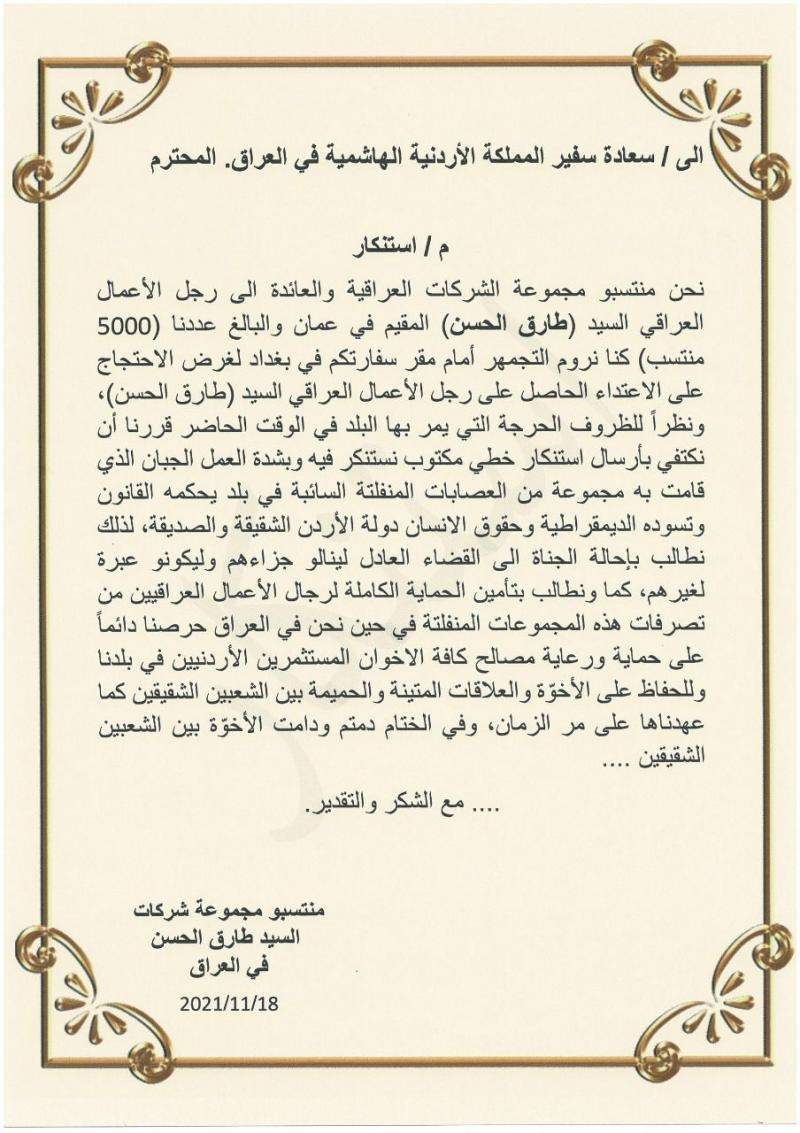 الى / سعادة سفير المملكة الأردنية الهاشمية في العراق. المحترم
م / استنكار
نحن منتسبو مجموعة الشركات العراقية والعائدة الى رجل الأعمال
العراقي السيد (طارق الحسن) المقيم في عمان والبالغ عددنا (5000
منتسب) كنا نروم التجمهر أمام مقر سفارتكم في بغداد لغرض الاحتجاج
على الاعتداء الحاصل على رجل الأعمال العراقي السيد (طارق الحسن)،
ونظراً للظروف الحرجة التي يمر بها البلد في الوقت الحاضر قررنا أن
نكتفي بأرسال استنكار خطي مكتوب نستنكر فيه وبشدة العمل الجبان الذي
قامت به مجموعة من العصابات المنفلتة السائبة في بلد يحكمه القانون
وتسوده الديمقراطية وحقوق الانسان دولة الأردن الشقيقة والصديقة، لذلك
نطالب بإحالة الجناة الى القضاء العادل لينالو جزاءهم وليكونو عبرة
لغيرهم، كما ونطالب بتأمين الحماية الكاملة لرجال الأعمال العراقيين من
تصرفات هذه المجموعات المنفلتة في حين نحن في العراق حرصنا دائماً
على حماية ورعاية مصالح كافة الاخوان المستثمرين الأردنيين في بلدنا
وللحفاظ على الأخوّة والعلاقات المتينة والحميمة بين الشعبين الشقيقين كما
عهدناها على مر الزمان، وفي الختام دمتم ودامت الأخوّة بين الشعبين
الشقيقين ....
.... مع الشكر والتقدير.
منتسبو مجموعة شركات
السيد طارق الحسن
في العراق
2021/11/18